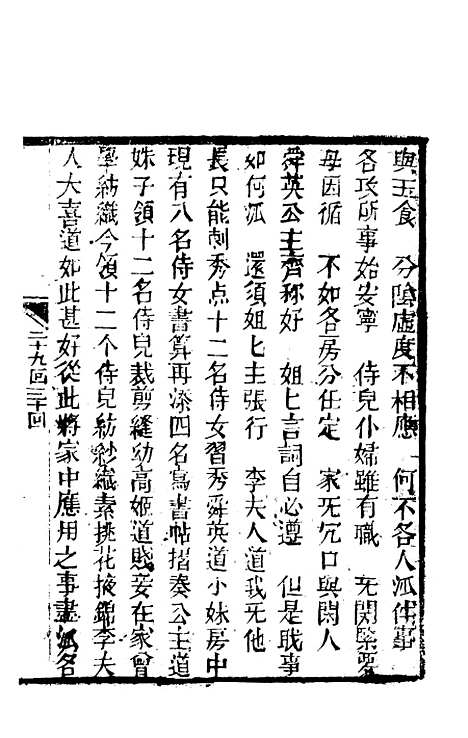 與玉食　分陰虛度不相應　何不各人派件事
各攻所事始安寧　侍兒仆婦雖有職　旡閑緊要
毋因循　不如各房分任定　家旡冗口與閑人
舜英公主齊称好　姐匕言詞自必遵　但是戝事
如何派　還須姐匕主張行　李夫人道我旡他
長只能刺秀点十二名侍女習秀舜英道小妹房中
現有八名侍女書算再添四名寫書帖摺奏公主道
妹子領十二名侍兒裁剪縫幼高姬道賤妾在家曾
學紡織今領十二个侍兒紡紗織素挑花掖錦李夫
人大喜道如此甚好從此將家中應用之事盡派名
二十九回三十回